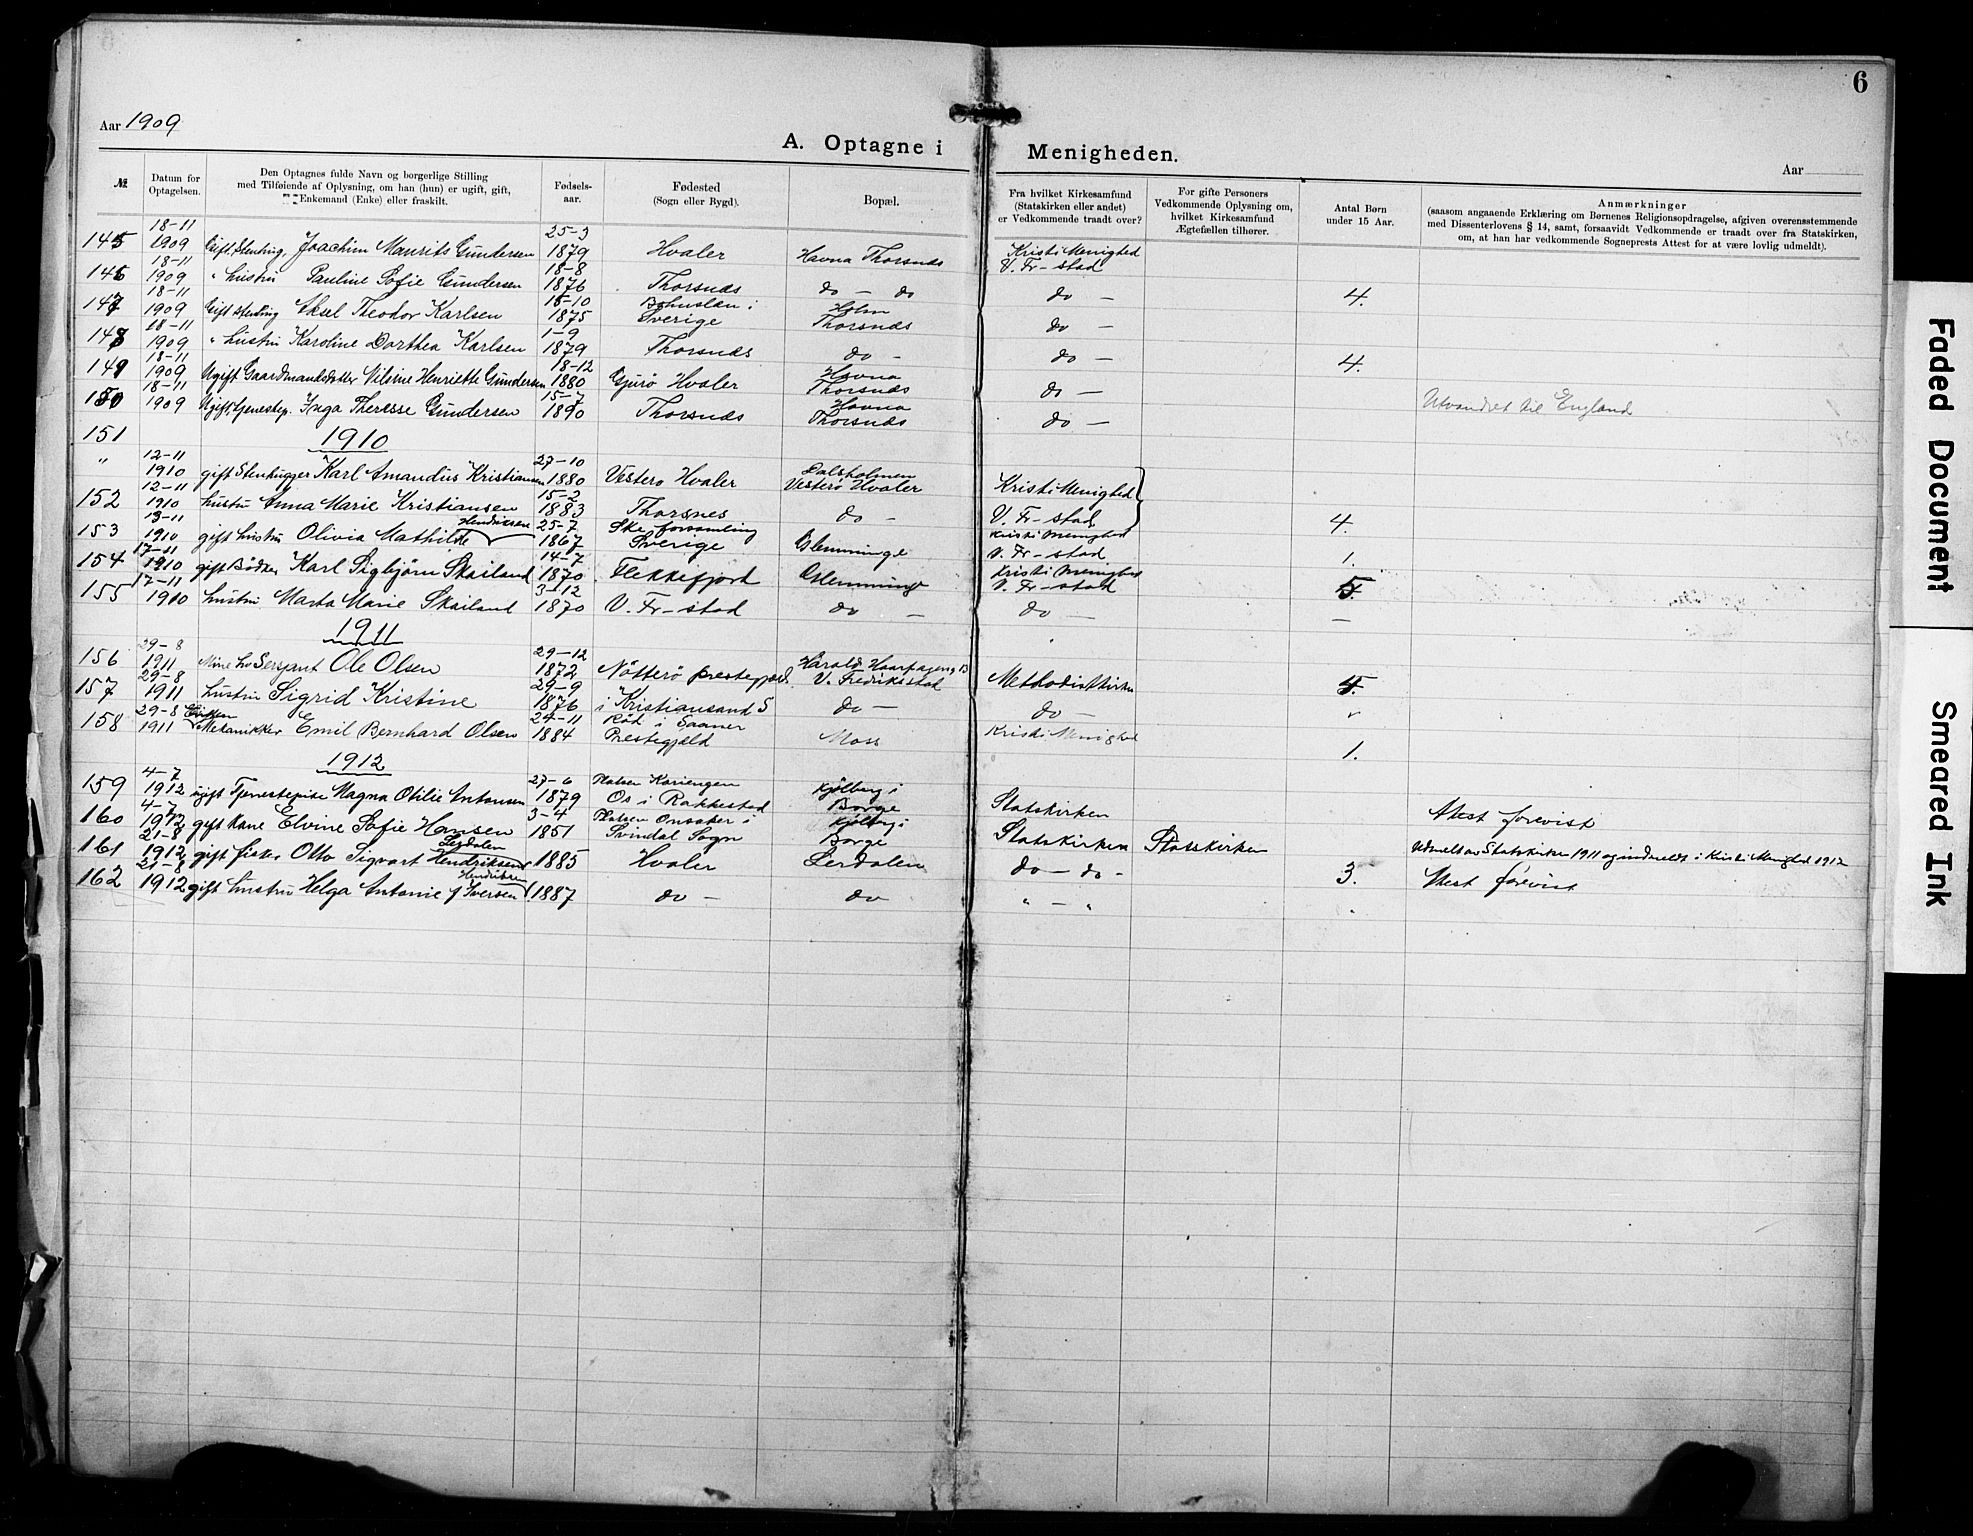 6
Aar 1909
A. Optagne i Menigheden.
Aar
№
Datum for Optagelsen.
Den Optagnes fulde Navn og borgerlige Stilling
med Tilføiende af Oplysning, om han (hun) er ugift, gift,
Enkemand (Enke) eller fraskilt.
Fødsels-
aar.
Fødested
(Sogn eller Bygd).
Bopæl.
Fra hvilket Kirkesamfund
(Statskirken eller andet)
er Vedkommende traadt over?
For gifte Personers
Vedkommende Oplysning om,
hvilket Kirkesamfund
Ægtefællen tilhører.
Antal Børn
under 15 Aar.
Anmærkninger
(saasom angaaende Erklæring om Børnenes Religionsopdragelse, afgiven overensstemmende
med Dissenterlovens § 14, samt, forsaavidt Vedkommende er traadt over fra Statskirken,
om, at han har vedkommende Sogneprests Attest for at være lovlig udmeldt).
145 18-11 1909 Gift, Stenhug, Joachim Maurits Gundersen 25-3 1879 Hvaler Havna Thorsnæs Kristi Menighed V. Fr-stad
146 18-11 1909 " hustru Pauline Sofie Gundersen 18-8 1876 Thorsnæs do - do do - 4.
147 18-11 1909 Gift stenhug Aksel Theodor Karlsen 15-10 1875 Bohuslæn i Sverige Holm Thorsnæs do -
148 18-11 1909 " hustru Karoline Dorthea Karlsen 1-9 1879 Thorsnæs do - do - 4.
149 18-11 1909 Ugift Gaardmandsdatter Nilsine Henriette Gundersen 18-12 1880 Gjurø Hvaler Havna Thorsnæs do -
150 18-11 1909 Ugift, tjenestep. Inga Theresse Gundersen 15-7 1890 Thorsnæs Havna Thorsnæs do - Utvandret til England
151 1910
" 12-11 1910 gift Stenhugger Karl Amandus Kristiansen 27-10 1880 Vesterø Hvaler Dalsholmen Vesterø Hvaler Kristi Menighed
152 12-11 1910 hustru Anna Marie Kristiansen 15-2 1883 Thorsnes do - V. Fr-stad 4.
153 13-11 1910 gift hustru Olivia Mathilde Hendriksen 25-7 1867 Ske forsamling Sverige Glemminge Kristi Menighed V. Fr-stad 1.
154 17-11 1910 gift Bødker Karl Sigbjørn Skailand 14-7 1870 Flekkefjord Glemminge Kristi Menighed V. Fr-stad 5.
155 17-11 1910 hustru Marta Marie Skailand 3-12 1870 V. Fr-stad do - do - -
1911
156 29-8 1911 Sersjant Ole Olsen 29-12 1872 Nøtterø prestegjæld Harald Haarfagersg 13 V. Fredriksstad Methodistkirken 5.
157 29-8 1911 hustru Sigrid Kristine 29-9 1876 i Kristiansand S do - do - "
158 29-8 1911 Mekanikker Emil Bernhard Olsen 24-11 1884 Rød i Saaner Prestegjæld Moss Kristi Menighed 1.
1912
159 4-7 1912 ugift Tjenestepike Magna Otilie Antonsen 27-6 1879 Platsen Kariengen Os i Rakkestad Kjølberg i Borge Statskirken Attest forevist
160 4-7 1912 gift Kone Elvine Sofie Hansen 3-4 1851 Platsen Onsaker i Svindal Sogn Kjølberg i Borge Statskirken Statskirken Udmelt av Statskirken 1911 og indmeldt i Kristi Menighed 1912
161 21-8 1912 gift fisker Otto Sigvart Lerdalen Hendriksen 1885 Hvaler Lerdalen do - do - 3. Attest forevist
162 21-8 1912 gift hustru Helga Antonie Hendriksen f Iversen 1887 do - do " - "
Faded Document
Smeared Ink